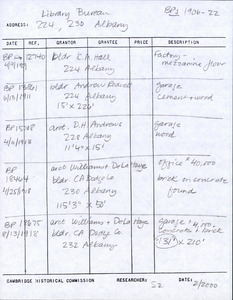 Library Bureau
BPs 1906-22
ADDRESS: 224, 230 Albany
DATE REF. GRANTOR GRANTEE PRICE DESCRIPTION
BP 12740 bldr C.A. Hall Factory-
4/9/1911 224 Albany mezzanine floor
BP bldr Andrew Roberts garage
1911 224 Albany cement + wood
15' x 226'
BP 15708 arct. D.H. Andrews garage
4/6/1918 228 Albany wood
11'4" x 15'
BP arct Williams + DeLa Haye office $40,000
18464 bldr. CA Dodge Co brick on concrete
4/25/1918 230 Albany found
115'3" x 50'
BP 18675 arct Williams + DeLa Haye garage $4,000-
8/13/1918 bldr CA Dodge Co. concrete + brick
232 Albany 131' x 210'
CAMBRIDGE HISTORICAL COMMISSION RESEARCHER: S2 DATE: 2/2000